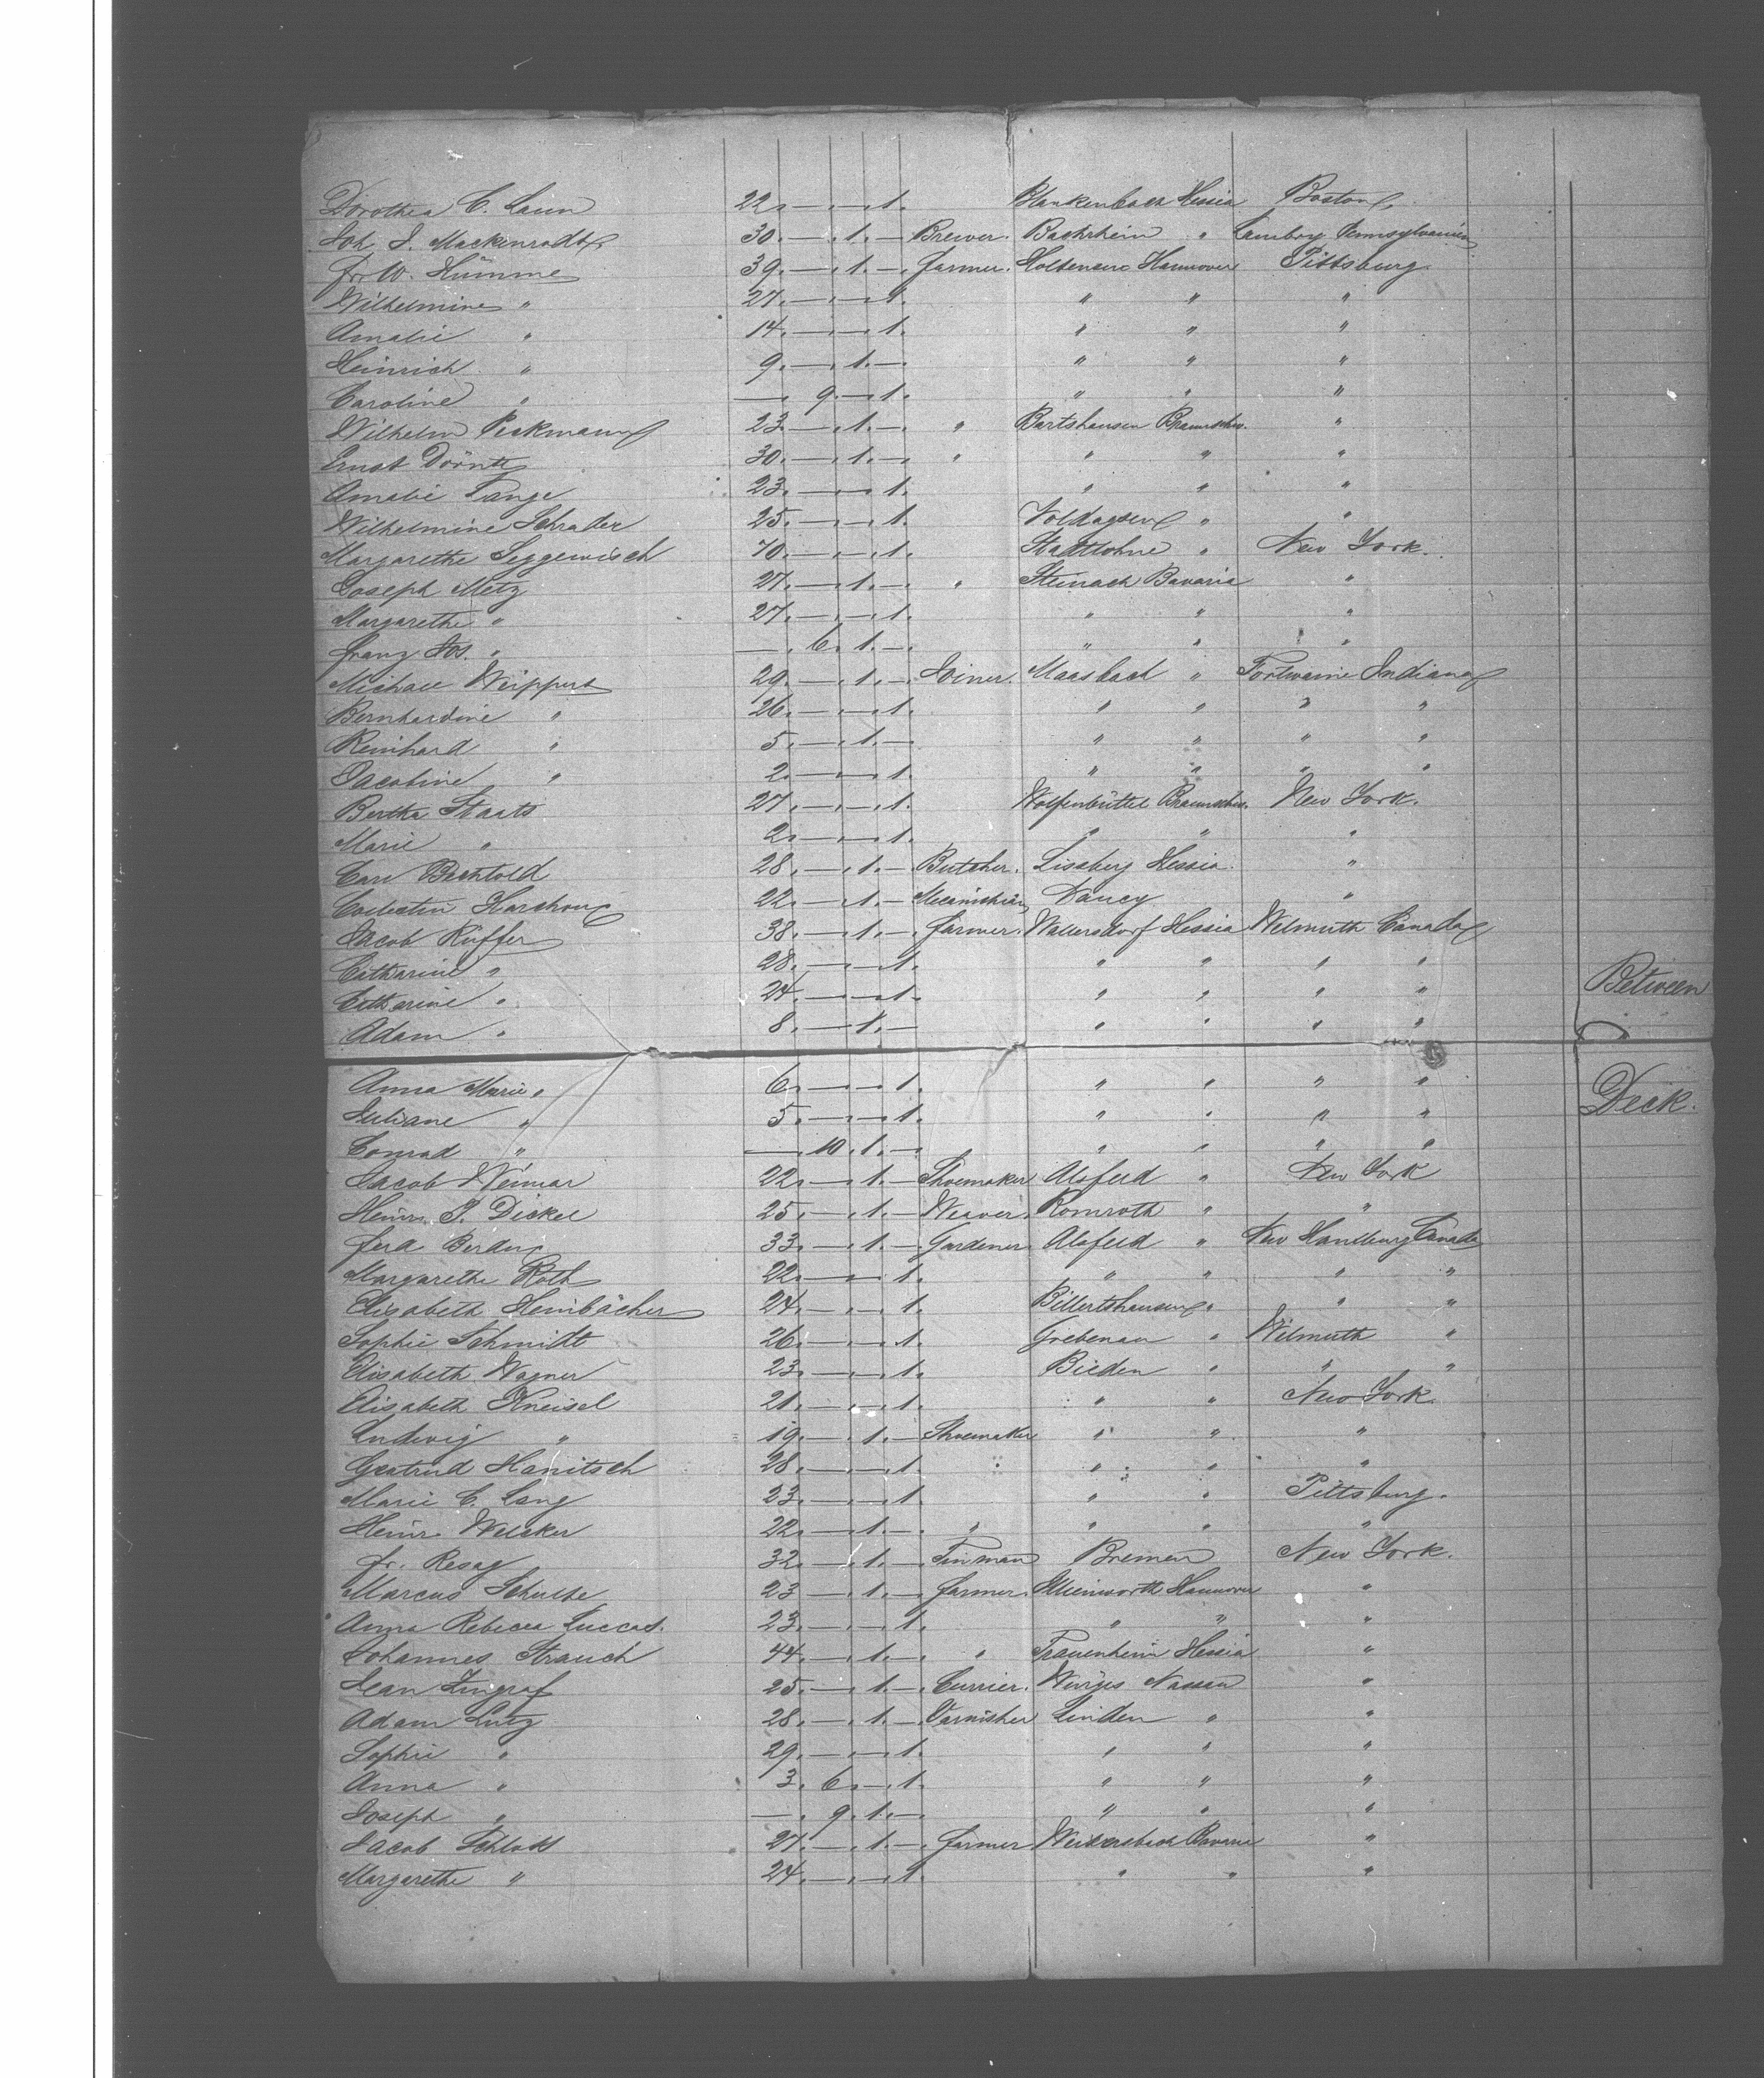 Dorothea C. Laun 22. — 1. Blankenbach Hessia Boston
Joh. J. Mackenrodt 30. — 1. — Brewer. Bachrhein " Pennsylvanien
Fr. W. Hümme 39. — 1. — farmer. Holtensen Hannover Pittsburg.
Wilhelmine " 27. — 1. " " "
Amalie " 14. — 1. " " "
Heinrich " 9. — 1. — " " "
Caroline " — 9. — 1. " " "
Wilhelm Peekmann 23. — 1. — " Bartshausen Braunschw. "
Ernst Dörnte 30. — 1. — " " " "
Amalie Lange 23. — 1. " " "
Wilhelmine Schrader 25. — 1. Voldagsen " "
Margarethe Seggewisch 70. — 1. Stadtlohne " New York.
Joseph Metz 27. — 1. — " Steinach Bavaria "
Margarethe " 27. — 1. " " "
Franz Jos. " — 6. 1. — " " "
Michael Weippert 29. — 1. — Joiner. Maasbach " Fortwaine Indiana
Bernhardine " 26. — 1. " " " "
Reinhard " 5. — 1. — " " " "
Jacobine " 2. — 1. " " " "
Bertha Staats 27. — 1. Wolfenbüttel Braunschw. New York.
Marie " 2. — 1. " " "
Carl Bechtold 28. — 1. — Butcher. Lissberg Hessia. "
Celestin 22. — 1. — Mecanichian Nancy "
Jacob Rüffer 38. — 1. — farmer. Wallersdorf Hessia Wilmuth Canada
Catharine " 28. — 1. " " " "
Catharine " 24. — 1. " " " " Between
Adam " 8. — 1. — " " " "
Anna Marie " 6. — 1. " " " "
Juliane " 5. — 1. " " " " Deck.
Conrad " — 10. 1. — " " " "
Jacob Weimar 22. — 1. — Shoemaker Alsfeld " New York
Heinr. J. Dickel 25. — 1. — Weaver. Romroth " "
Ferd 33. — 1. — Gardener. Alsfeld " New Hamburg Canada
Margarethe Roth 22. — 1. " " " "
Elisabeth Heinbächer 24. — 1. Billertshausen " " "
Sophie Schmidt 26. — 1. Grebenau " Wilmuth "
Elisabeth Wagner 23. — 1. Bieden " " "
Elisabeth Kneisel 21. — 1. " " New York.
Ludwig " 19. — 1. — Shoemaker " " "
Geatrud Hanitsch 28. — 1. " " " "
Marie C. Lang 23. — 1. " " Pittsburg.
Heinr. Welcker 22. — 1. — " " " "
Fr. Resag 32. — 1. — Tinman Bremen New York.
Marcus Schulte 23 — 1. — farmer. Ihlienworth Hannover "
Anna Rebecca Luccas. 23. — 1. " " "
Johannes Strauch 44. — 1. — " Trauenheim Hessia "
Jean Zingraf 25. — 1. — Currier. Würges Nassau "
Adam Lutz 28. — 1. — Varnisher Linden " "
Sophie " 29. — 1. " " "
Anna " 3. 6. — 1. " " "
Joseph " — 9. 1. — " " "
Jacob Schloss 27. — 1. — farmer Weikersbach Bavaria "
Margarethe " 24. — 1. " " "